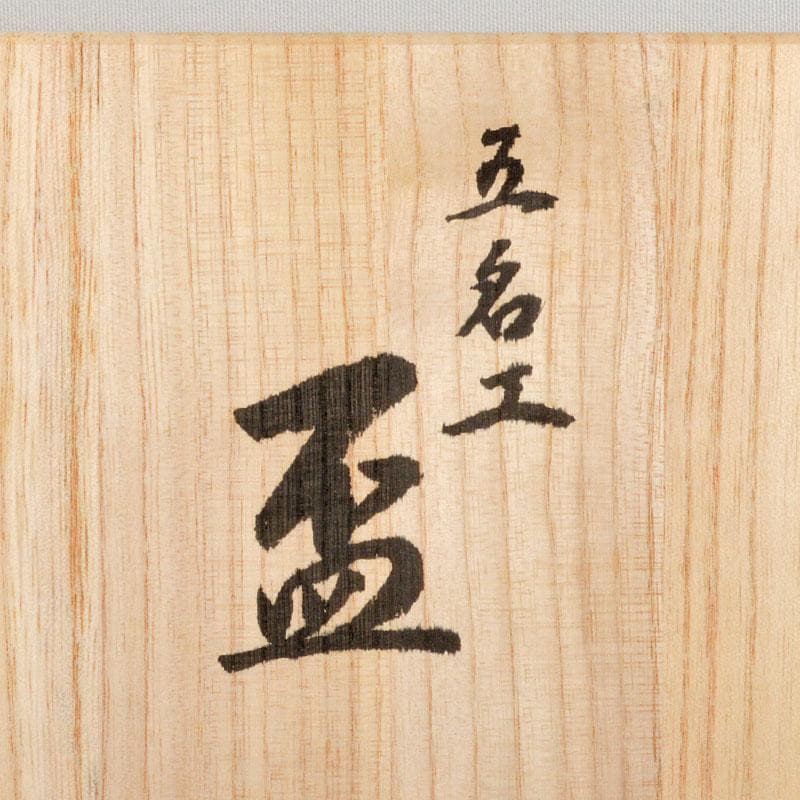 五名工
盃